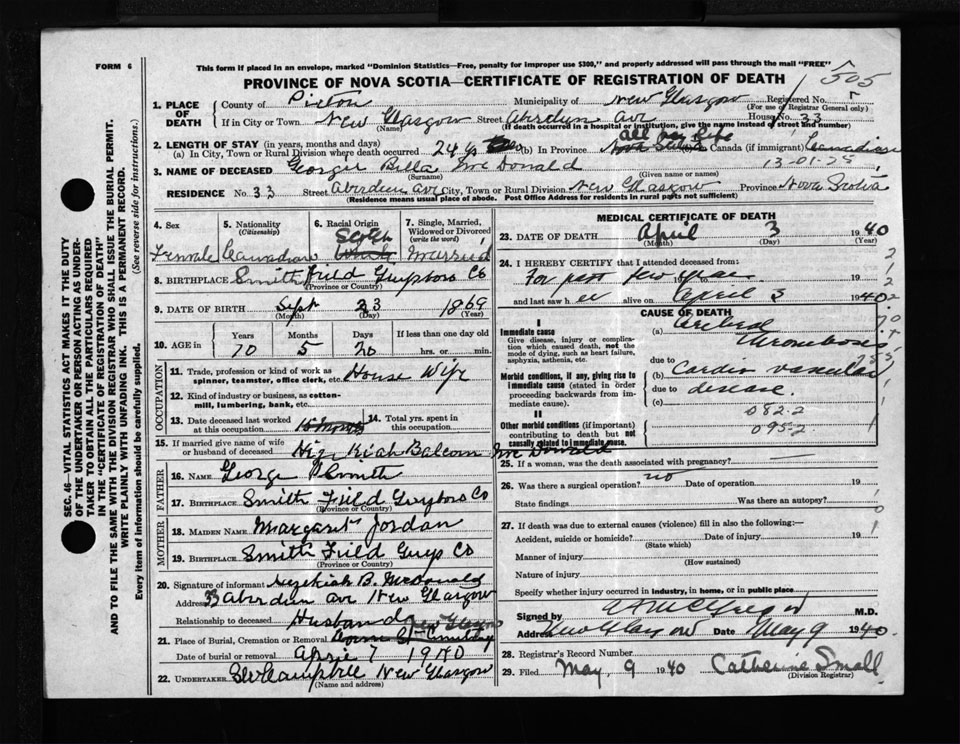 FORM 6
This form if placed in an envelope, marked "Dominion Statistics—Free, penalty for improper use $300," and properly addressed will pass through the mail "FREE"
PROVINCE OF NOVA SCOTIA—CERTIFICATE OF REGISTRATION OF DEATH
505
1. PLACE OF DEATH
County of Pictou Municipality of New Glasgow Registered No.
(For use of Registrar General only)
If in City or Town New Glasgow Street Aberdeen Ave House No. 33
(Name) (If death occurred in a hospital or institution, give the name instead of street and number)
2. LENGTH OF STAY (in years, months and days) all her life
(a) In City, Town or Rural Division where death occurred 24 ys (b) In Province Nova Scotia Canada (if immigrant) Canadian
13-01-25
3. NAME OF DECEASED Georgie Bella McDonald
(Surname) (Given name or names)
RESIDENCE No. 33 Street Aberdeen Ave City, Town or Rural Division New Glasgow Province Nova Scotia
(Residence means usual place of abode. Post Office Address for residents in rural parts not sufficient)
4. Sex 5. Nationality (Citizenship) 6. Racial Origin 7. Single, Married, Widowed or Divorced (write the word)
Female Canadian Scotch Married
8. BIRTHPLACE Smith Field Guysboro Co
(Province or Country)
9. DATE OF BIRTH Sept 23 1869
(Month) (Day) (Year)
10. AGE in Years Months Days If less than one day old
70 5 20 hrs. or min.
OCCUPATION
11. Trade, profession or kind of work as spinner, teamster, office clerk, etc. House Wife
12. Kind of industry or business, as cotton-mill, lumbering, bank, etc.
13. Date deceased last worked at this occupation
14. Total yrs. spent in this occupation
15. If married give name of wife or husband of deceased Hezekiah Balcom McDonald
FATHER
16. NAME George P Smith
17. BIRTHPLACE Smith Field Guysboro Co
(Province or Country)
MOTHER
18. MAIDEN NAME Margaret Jordan
19. BIRTHPLACE Smith Field Guys Co
(Province or Country)
20. Signature of informant Hezekiah B. McDonald
Address 33 Aberdeen Ave New Glasgow
Relationship to deceased Husband
New Glasgow
21. Place of Burial, Cremation or Removal Cemetery
Date of burial or removal April 7 1940
22. UNDERTAKER Campbell New Glasgow
(Name and address)
MEDICAL CERTIFICATE OF DEATH
23. DATE OF DEATH April 3 1940
(Month) (Day) (Year)
24. I HEREBY CERTIFY that I attended deceased from:
For past few years 19 to 19
and last saw her alive on April 3 1940
CAUSE OF DEATH
I
Immediate cause
Give disease, injury or complication which caused death, not the mode of dying, such as heart failure, asphyxia, asthenia, etc.
(a) Cerebral Thrombosis
due to
Morbid conditions, if any, giving rise to immediate cause (stated in order proceeding backwards from immediate cause).
(b) Cardio vascular
due to disease.
(c)
II
Other morbid conditions (if important) contributing to death but not causally related to immediate cause.
082.2
095.2
25. If a woman, was the death associated with pregnancy?
26. Was there a surgical operation? no Date of operation 19
State findings Was there an autopsy?
27. If death was due to external causes (violence) fill in also the following:—
Accident, suicide or homicide? Date of injury 19
(State which)
Manner of injury
(How sustained)
Nature of injury
Specify whether injury occurred in industry, in home, or in public place
Signed by M.D.
Address New Glasgow Date May 9 1940.
28. Registrar's Record Number
29. Filed May 9 1940 Catherine Small
(Division Registrar)
SEC. 46—VITAL STATISTICS ACT MAKES IT THE DUTY
OF THE UNDERTAKER OR PERSON ACTING AS UNDER-
TAKER TO OBTAIN ALL THE PARTICULARS REQUIRED
IN THE "CERTIFICATE OF REGISTRATION OF DEATH"
AND TO FILE THE SAME WITH THE DIVISION REGISTRAR WHO SHALL ISSUE THE BURIAL PERMIT.
WRITE PLAINLY WITH UNFADING INK. THIS IS A PERMANENT RECORD.
Every item of information should be carefully supplied. (See reverse side for instructions.)